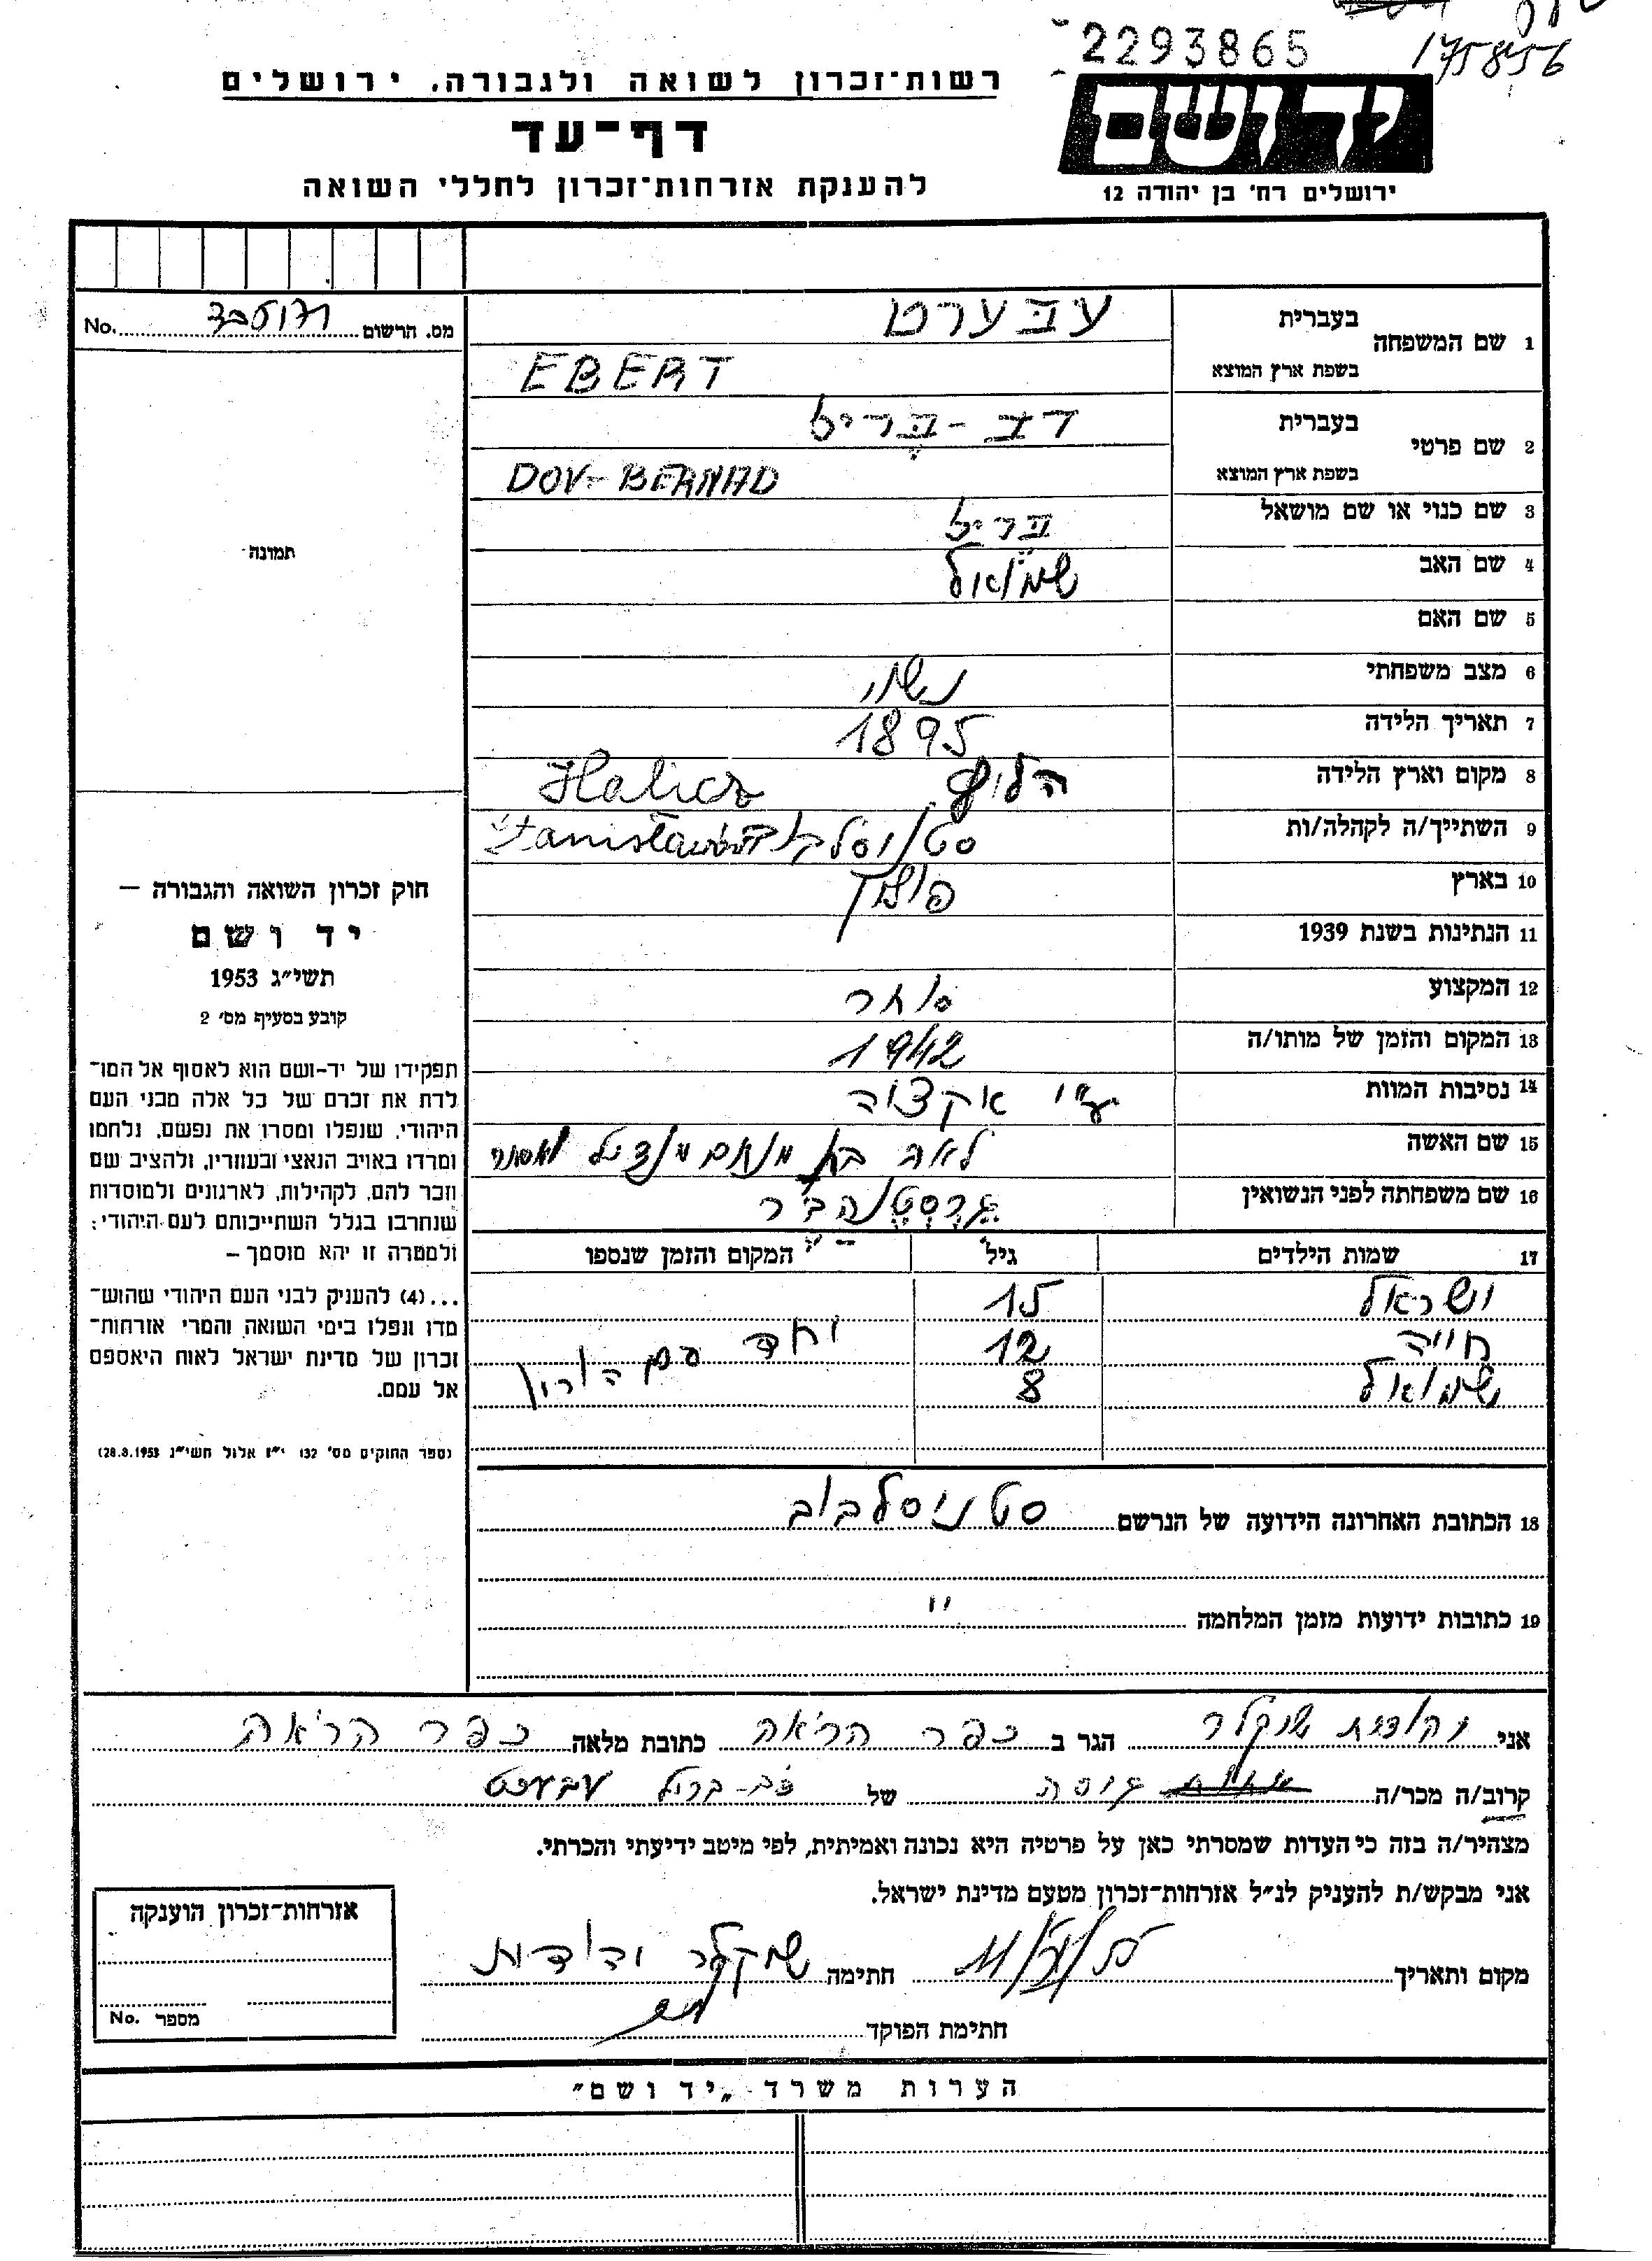 2293865
175856
רשות־זכרון לשואה ולגבורה, ירושלים
דף־עד
להענקת אזרחות־זכרון לחללי השואה
יד ושם
ירושלים רח' בן יהודה 12
מס. הרשום No.
1 שם המשפחה בעברית עבערט
בשפת ארץ המוצא EBERT
2 שם פרטי בעברית דב - בריל
בשפת ארץ המוצא DOV - BERNAD
3 שם כנוי או שם מושאל בריל
4 שם האב שמואל
5 שם האם
6 מצב משפחתי נשוי
7 תאריך הלידה 1895
8 מקום וארץ הלידה הליץ Halicz
9 השתייך/ה לקהלה/ות
10 בארץ פולין
11 הנתינות בשנת 1939
12 המקצוע סוחר
13 המקום והזמן של מותו/ה 1942
14 נסיבות המוות ע"י אקציה
15 שם האשה לאה בת מנחם מנדיל
16 שם משפחתה לפני הנשואין
17 שמות הילדים גיל המקום והזמן שנספו
ישראל 15
חייה 12 יחד עם הורין
שמואל 8
18 הכתובת האחרונה הידועה של הנרשם סטניסלבוב
19 כתובות ידועות מזמן המלחמה "
תמונה
חוק זכרון השואה והגבורה —
יד ושם
תשי״ג 1953
קובע בסעיף מס׳ 2
תפקידו של יד-ושם הוא לאסוף אל המו־
לדת את זכרם של כל אלה מבני העם
היהודי, שנפלו ומסרו את נפשם, נלחמו
ומרדו באויב הנאצי ובעוזריו, ולהציב שם
וזכר להם, לקהילות, לארגונים ולמוסדות
שנחרבו בגלל השתייכותם לעם היהודי;
ולמטרה זו יהא מוסמך —
...(4) להעניק לבני העם היהודי שהוש־
מדו ונפלו בימי השואה והמרי אזרחות־
זכרון של מדינת ישראל לאות היאספם
אל עמם.
(ספר החוקים מס׳ 132 י״ז אלול תשי״ג 28.8.1953)
אני יהודית שנקלר הגר ב כפר הרא"ה כתובת מלאה כפר הרא"ה
קרוב/ה מכר/ה גיסה של דב-בריל עבערט
מצהיר/ה בזה כי העדות שמסרתי כאן על פרטיה היא נכונה ואמיתית, לפי מיטב ידיעתי והכרתי.
אני מבקש/ת להעניק לנ״ל אזרחות־זכרון מטעם מדינת ישראל.
מקום ותאריך חתימה שנקלר יהודית
חתימת הפוקד
אזרחות־זכרון הוענקה
מספר No.
הערות משרד „יד ושם״